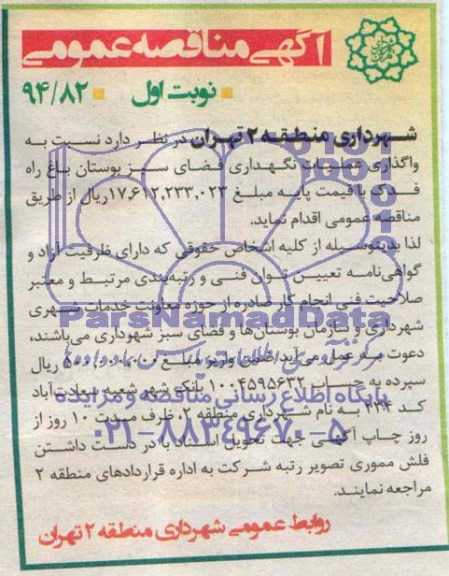 آگهی مناقصه عمومی
نوبت اول ۹۴/۸۲
شهرداری منطقه ۲ تهران در نظر دارد نسبت به
واگذاری عملیات نگهداری فضای سبز بوستان باغ راه
فدک با قیمت پایه مبلغ ۱۷,۶۱۲,۲۳۳,۰۲۳ ریال از طریق
مناقصه عمومی اقدام نماید.
لذا بدینوسیله از کلیه اشخاص حقوقی که دارای ظرفیت آزاد و
گواهی‌نامه تعیین توان فنی و رتبه‌بندی مرتبط و معتبر
صلاحیت فنی انجام کار صادره از حوزه معاونت خدمات شهری
ParsNamadData
شهرداری و سازمان بوستان‌ها و فضای سبز شهرداری می‌باشند،
دعوت به عمل می‌آید ضمن واریز مبلغ ریال
سپرده به حساب ۱۰۰۴۵۹۵۶۳۲ بانک شهر شعبه سعادت آباد
پایگاه اطلاع رسانی مناقصه و مزایده
کد ۴۳۴ به نام شهرداری منطقه ۲، ظرف مدت ۱۰ روز از
۰۲۱-۸۸۳۴۹۶۷۰-۵
روز چاپ آگهی جهت تحویل اسناد با در دست داشتن
فلش مموری تصویر رتبه شرکت به اداره قراردادهای منطقه ۲
مراجعه نمایند.
روابط عمومی شهرداری منطقه ۲ تهران